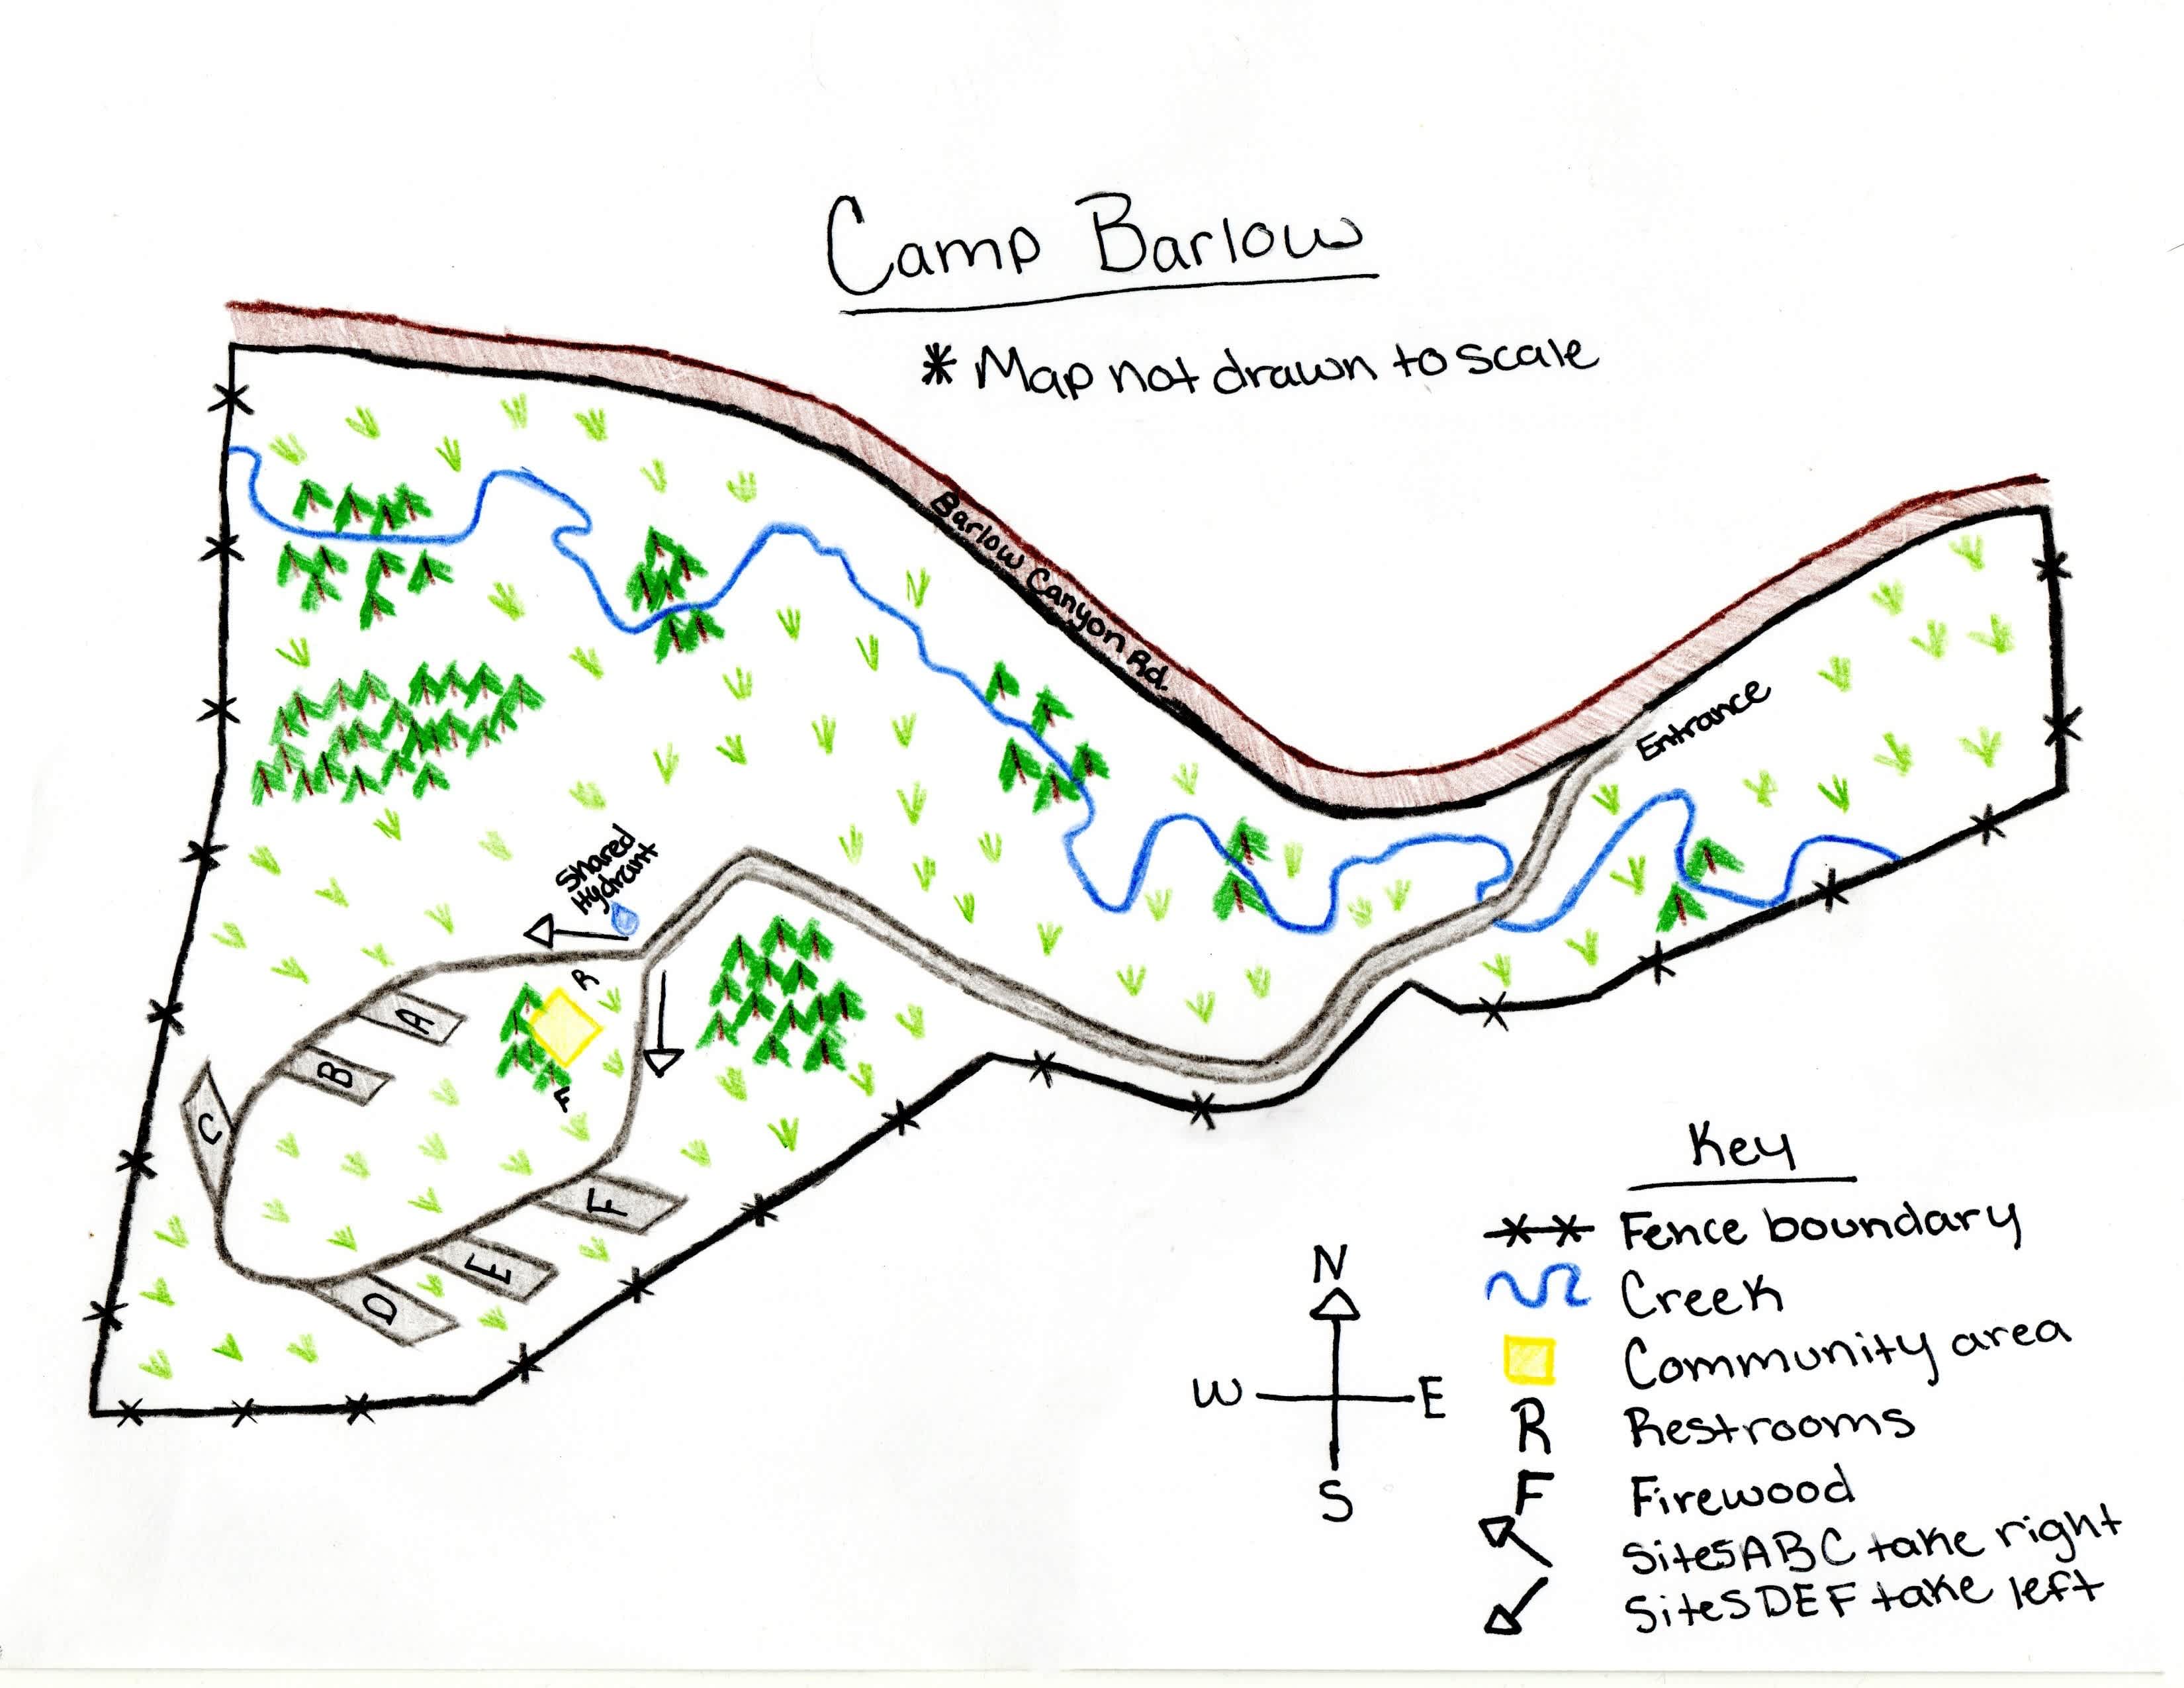 Camp Barlow
* Map not drawn to scale
Barlow Canyon Rd.
Entrance
Shared
Hydrant
R
A
B
C
F
F
E
D
Key
Fence boundary
Creek
Community area
R Restrooms
F Firewood
Sites ABC take right
Sites DEF take left
N
W E
S